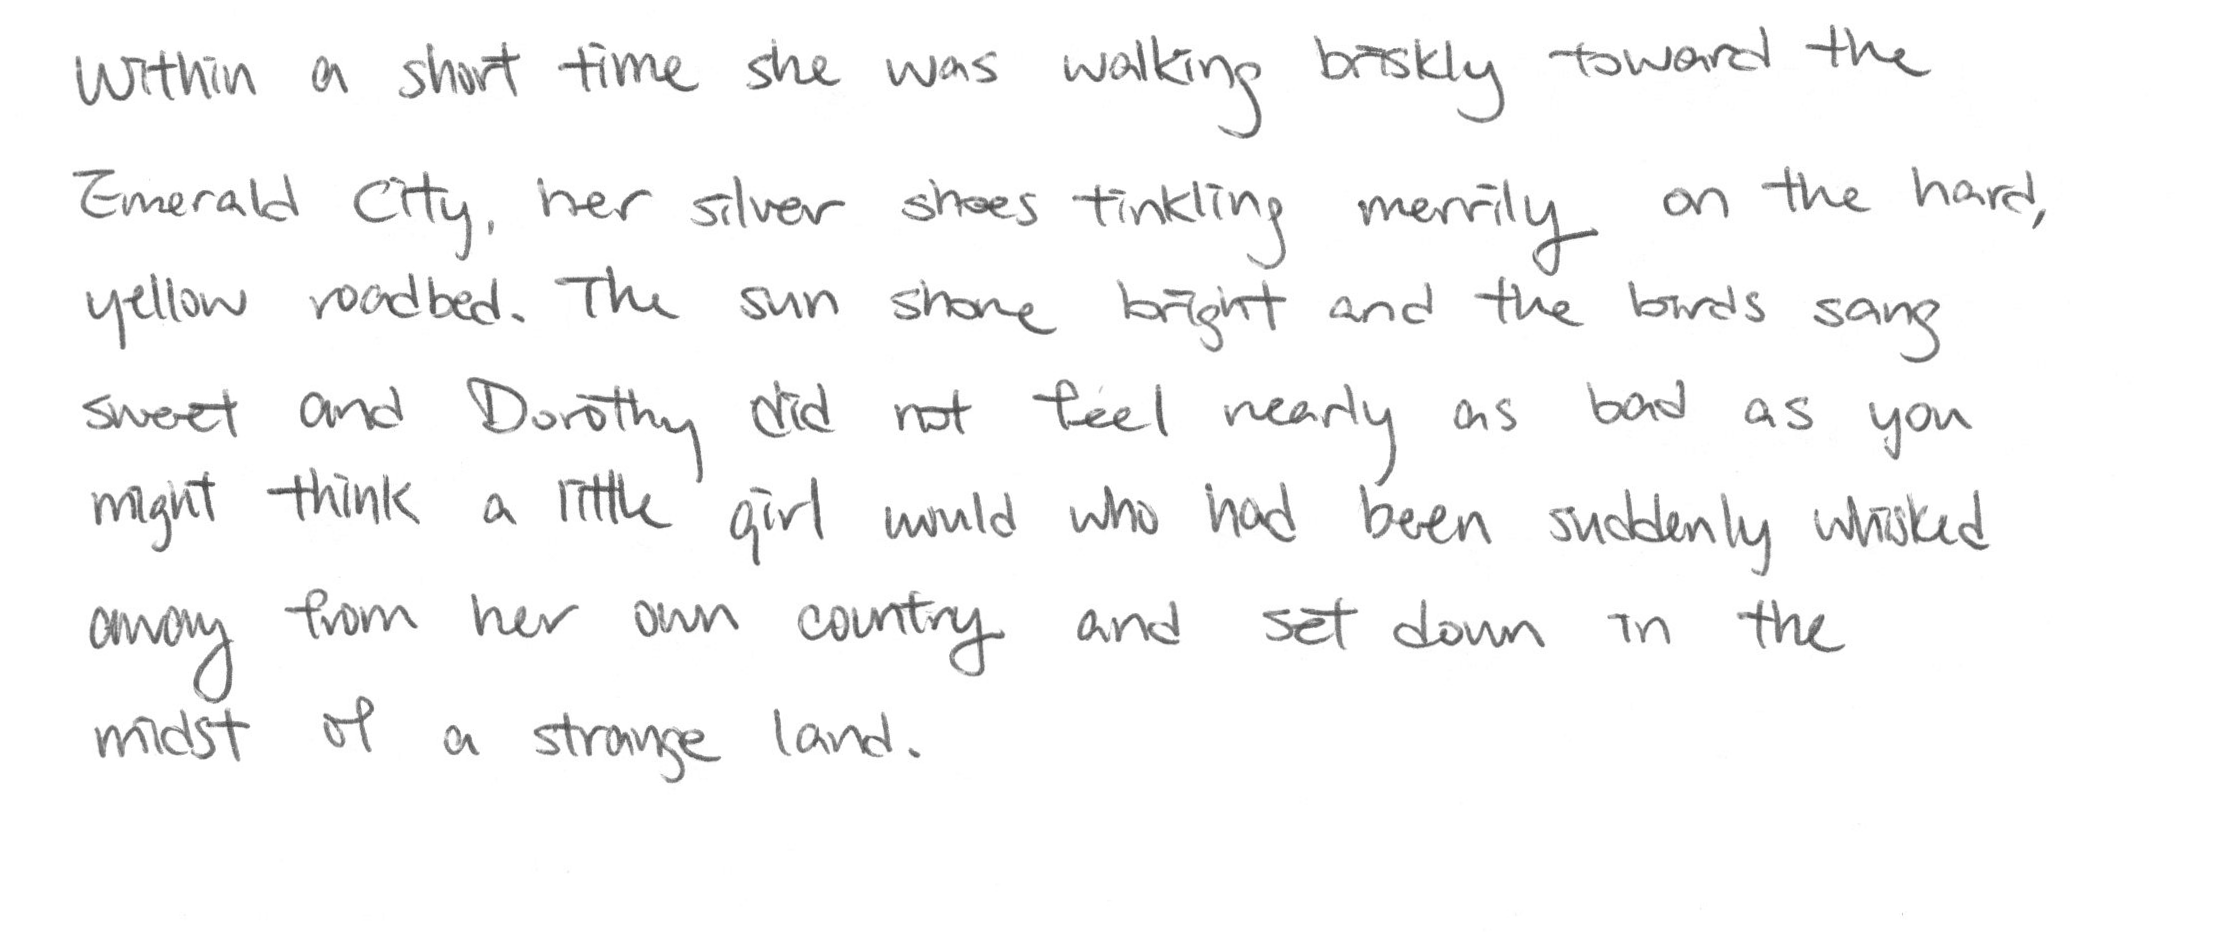 Within a short time she was walking briskly toward the
Emerald City, her silver shoes tinkling merrily on the hard,
yellow roadbed. The sun shone bright and the birds sang
sweet and Dorothy did not feel nearly as bad as you
might think a little girl would who had been suddenly whisked
away from her own country and set down in the
midst of a strange land.